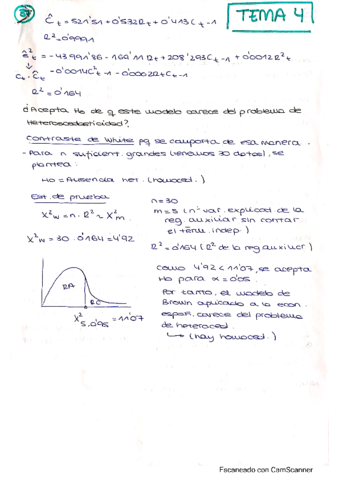 67
TEMA 4
Ĉt = 521'51 + 0'532Rt + 0'413Ct-1
R² = 0'9991
êt² = -4399'86 - 160'11Rt + 208'293Ct-1 + 0'0012R²t
Ct - Ĉt - 0'0014C²t-1 - 0'0002RtCt-1
R² = 0'164
¿Acepta Ho de q este modelo carece del problema de
Heteroscedasticidad?
Contraste de White pq se comporta de esa manera.
- Para n suficient. grandes (tenemos 30 datos), se
plantea:
Ho = Ausencia het. (homoced.)
Est. de prueba
X²w = n · R² ~ X²m
X²w = 30 · 0'164 = 4'92
n = 30
m = 5 (nº var. explicad de la
reg. auxiliar sin contar
el térm. indep.)
R² = 0'164 (R² de la reg auxiliar)
RA
RC
X²5,0'95 = 11'07
como 4'92 < 11'07, se acepta
Ho para α = 0'05.
Por tanto, el modelo de
Brown aplicado a la econ.
españ. carece del problema
de heteroced.
↳ (hay homoced.)
Escaneado con CamScanner